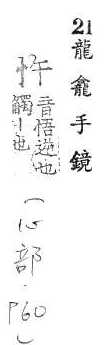 21 龍龕手鏡
忤 音悟逆也
觸丨也
（心部·P60）